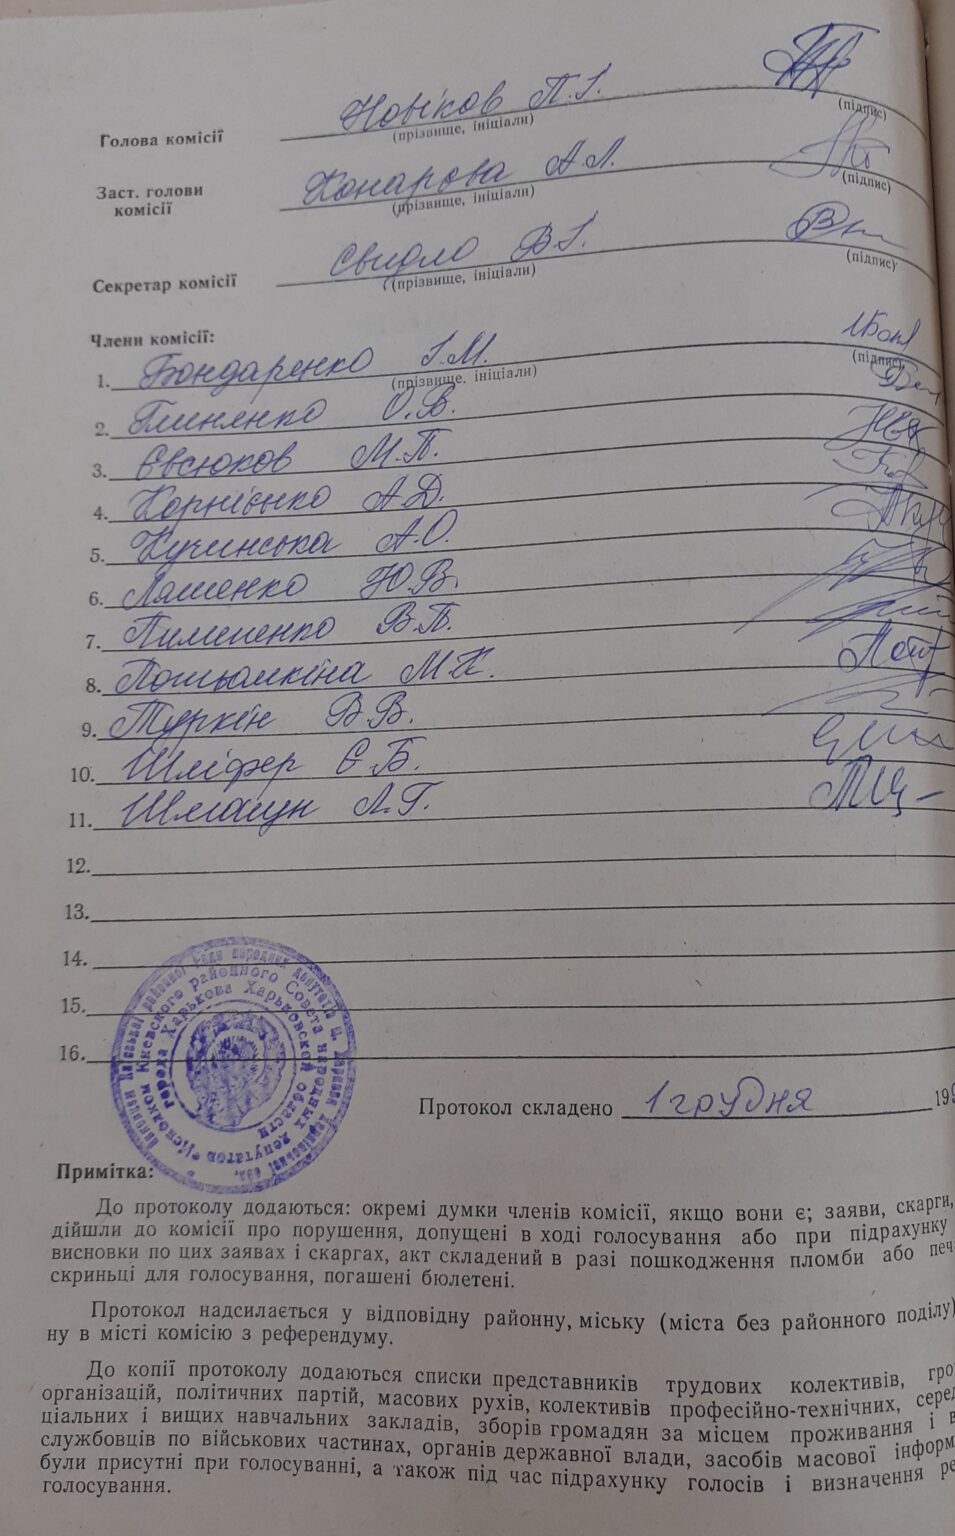 Голова комісії Новіков П.І.
(прізвище, ініціали) (підпис)
Заст. голови
комісії Конарова А.Л.
(прізвище, ініціали) (підпис)
Секретар комісії Свидло В.І.
(прізвище, ініціали) (підпис)
Члени комісії:
1. Бондаренко І.М.
(прізвище, ініціали) (підпис)
2. О.В.
3. Євсюков М.П.
4. Корнієнко А.Д.
5. Кучинська А.О.
6. Ю.В.
7. Пимоненко В.П.
8. Потьомкіна М.К.
9. Туркін В.В.
10. Шліфер Є.Б.
11. Л.Г.
12.
13.
14.
15.
16.
Исполком Киевского районного Совета народных депутатов
города Харькова Харьковской области
Протокол складено 1 грудня 199
Примітка:
До протоколу додаються: окремі думки членів комісії, якщо вони є; заяви, скарги,
дійшли до комісії про порушення, допущені в ході голосування або при підрахунку
висновки по цих заявах і скаргах, акт складений в разі пошкодження пломби або печ
скриньці для голосування, погашені бюлетені.
Протокол надсилається у відповідну районну, міську (міста без районного поділу)
ну в місті комісію з референдуму.
До копії протоколу додаються списки представників трудових колективів, гро
організацій, політичних партій, масових рухів, колективів професійно-технічних, серед
ціальних і вищих навчальних закладів, зборів громадян за місцем проживання і в
службовців по військових частинах, органів державної влади, засобів масової інформ
були присутні при голосуванні, а також під час підрахунку голосів і визначення ре
голосування.